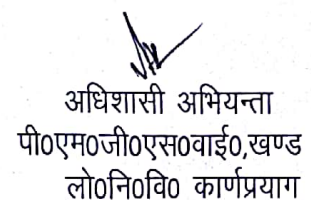 अधिशासी अभियन्ता
पी०एम०जी०एस०वाई०,खण्ड
लो०नि०वि० कार्णप्रयाग